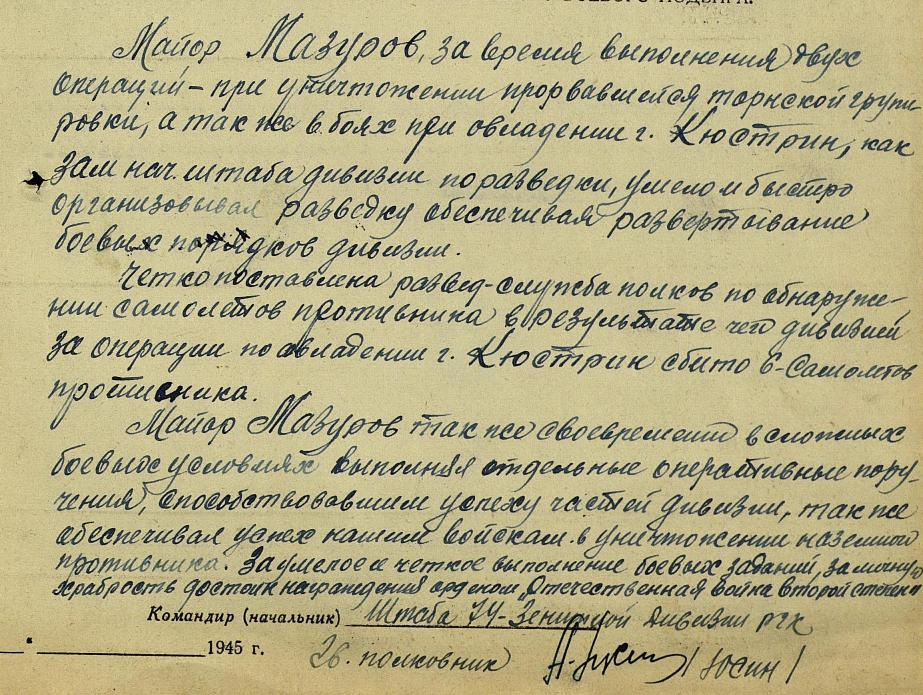 Майор Мазуров, за время выполнения двух
операций – при уничтожении прорвавшейся торнской групи
ровки, а так же в боях при овладении г. Кюстрин, как
зам нач. штаба дивизии по разведки, умело и быстро
организовывал разведку обеспечивая развертывание
боевых порядков дивизии.
Четко поставлена развед-служба полков по обнаруже-
нии самолетов противника в результате чего дивизией
за операции по овладении г. Кюстрин сбито 6-самолетов
противника.
Майор Мазуров так же своевременно в сложных
боевых условиях выполняя отдельные оперативные пору-
чения, способствовавшим успеху частей дивизии, так же
обеспечивал успех нашим войскам в уничтожении наземного
противника. За умелое и четкое выполнение боевых заданий, за личную
храбрость достоин награждения орденом „Отечественная война второй степени"
Командир (начальник) Штаба 74-Зенитной дивизии РГК
1945 г. полковник / Юсин /